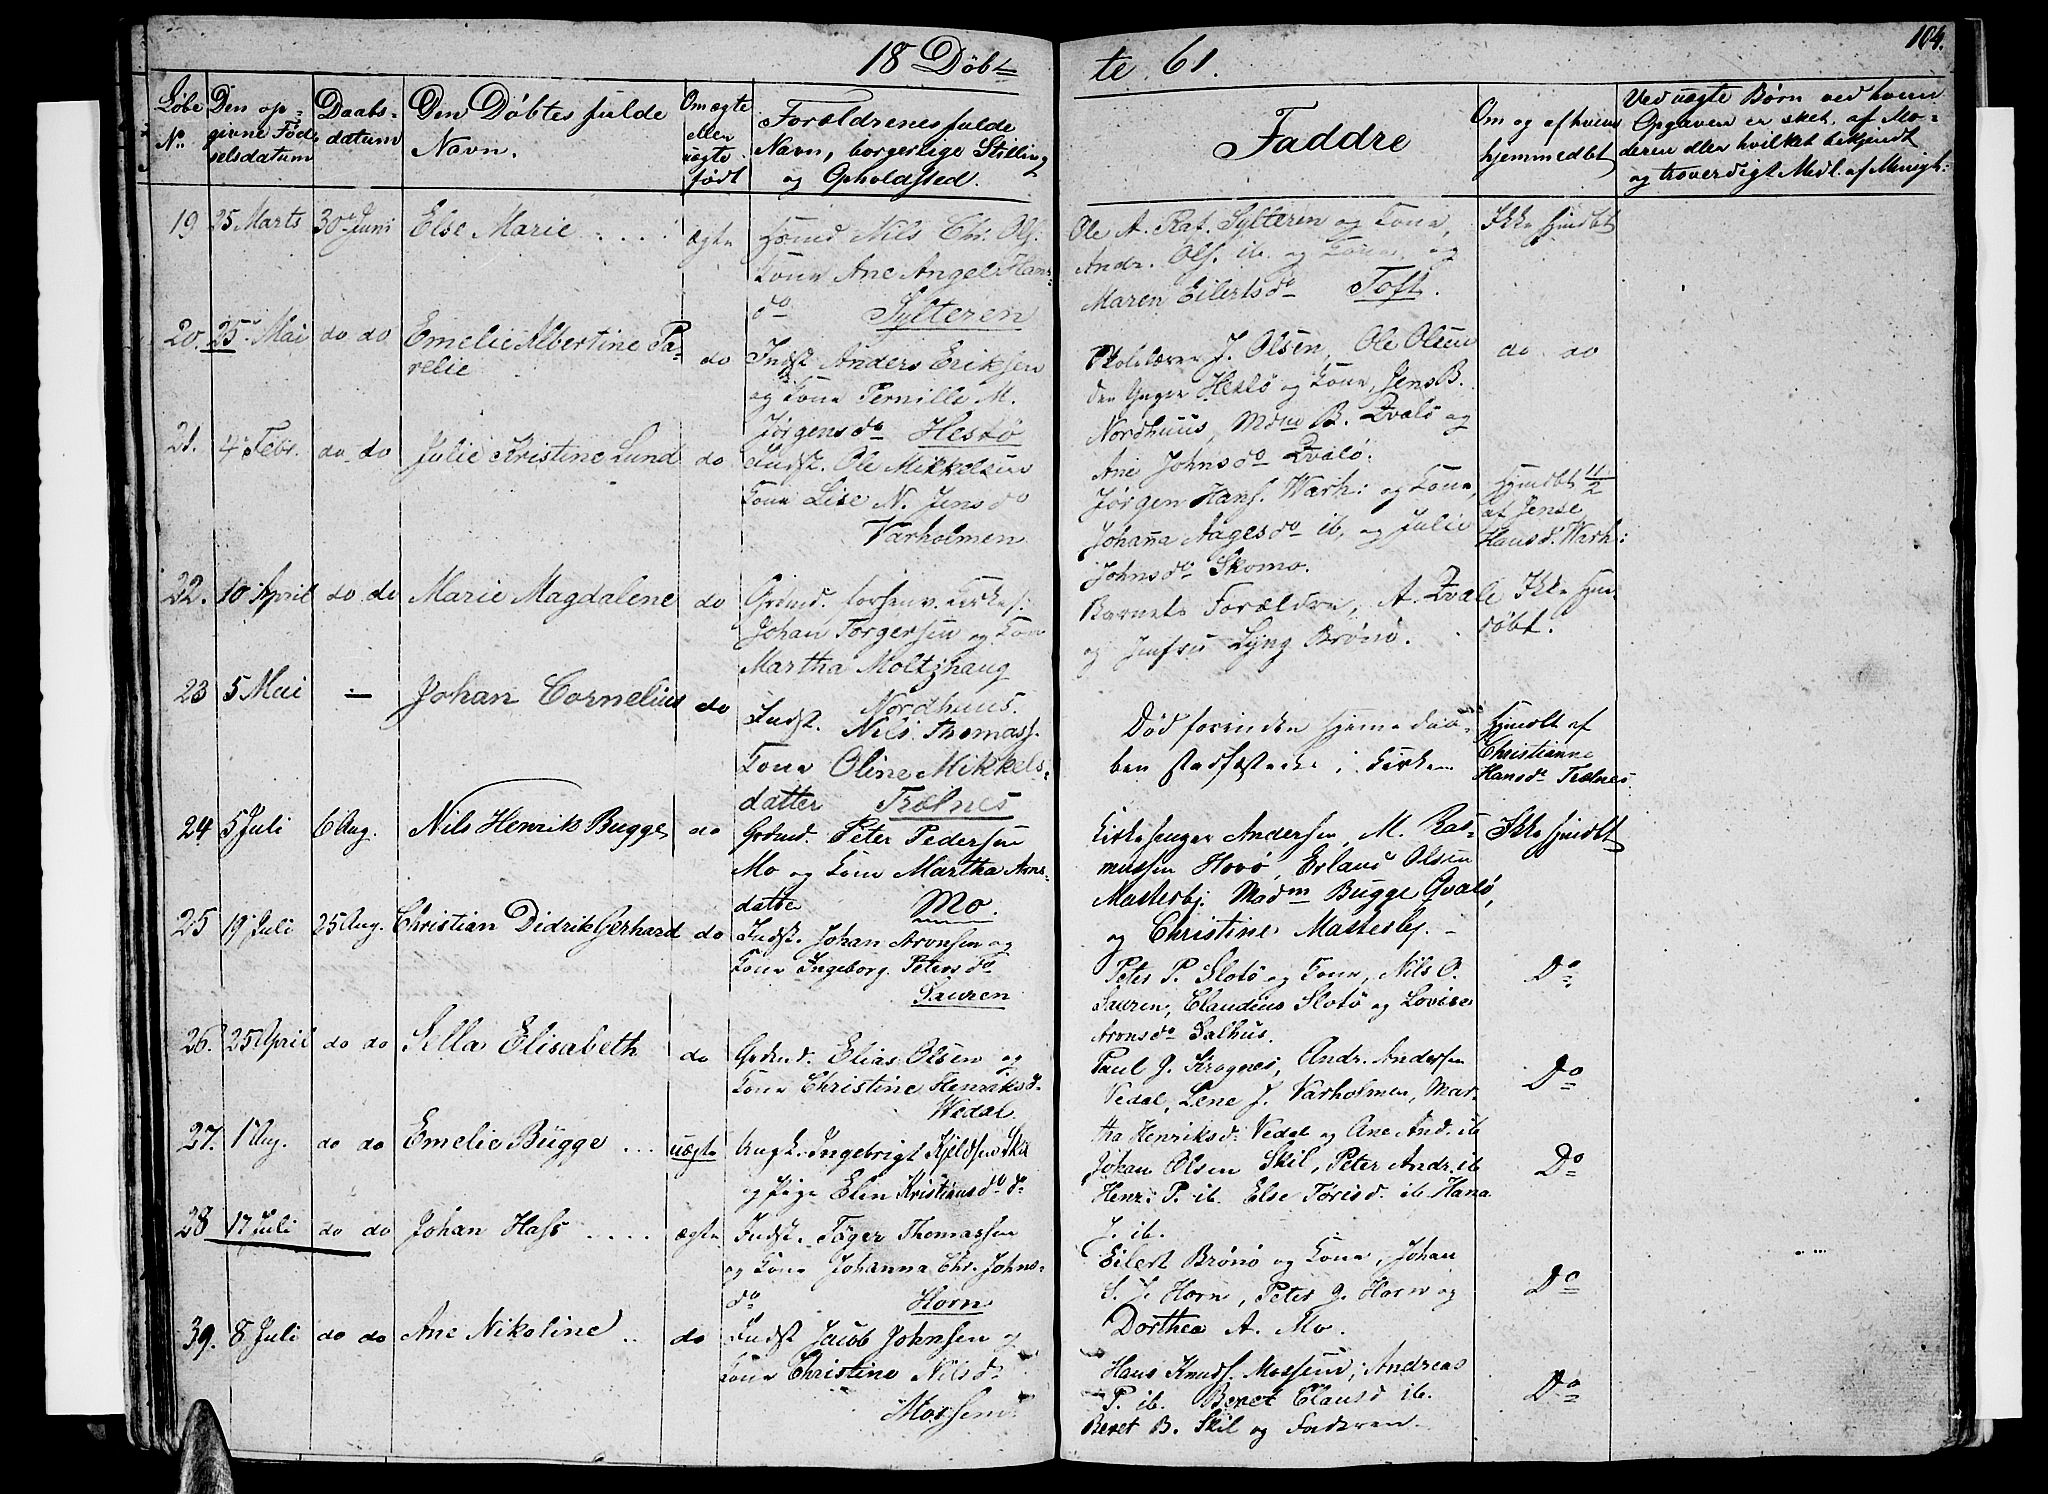 104.
18 Døbte 61.
Løbe No
Den opgivne Fødselsdatum
Daabsdatum
Den Døbtes fulde Navn.
Om ægte eller uægte født
Forældrenes fulde Navn, borgerlige Stilling og Opholdssted.
Faddre
Om og af hvem hjemmedøbt
Ved uægte Børn ved hvem Opgaven er sket, af Moderen eller hvilket bekjendt og troverdigt Medl. af Menigh:
19 25 Marts 30 Juni Else Marie .... ægte
Nils Chr. Ols.
Kone Ane Angel Hans-
do Sylteren
Ole A. Ras. Sylteren og Kone,
Andr. Ols. ib. og Kone, og
Maren Eilertsdo Toft.
Ikke hjmdbt
20. 25 Mai do do Emelie Albertine Parelie do
Indst Anders Eriksen
og Kone Pernille M.
Jørgensdo Hestø
Skolelærer J. Olsen, Ole Olsen
den Yngre Hestø og Kone, Jens B.
Nordhuus, Mdm B. Qvalø og
Ane Johnsdo Qvalø.
do do
21. 4 Febr. do do Julie Kristine Lund do
Indst. Ole Mikkelsen
Kone Lise N. Jensdo
Varholmen
Jørgen Hans. Warh: og Kone,
Johanna Aagesdo ib, og Julie
Johnsdo Skomo.
Hjmdbt 11/2
af Jense
Hansd. Warh:
22. 10 April do do Marie Magdalene do
Johan Torgersen og Kone
Martha Moltzhaug
Nordhuus.
Barnets Forældre, A. Qvale
og Jomfru Lyng Brønø.
Ikke hjmdøbt.
23 5 Mai — Johan Cornelius do
Indst. Nils Thomass.
Kone Oline Mikkelsdatter Trælnes
Død forinden Hjemmedaaben stadfæstede i Kirken
Hjmdbt af
Christianne
Hansdr Trælnes.
24 5 Juli 6 Aug. Nils Henrik Bugge do
Grdmd. Peter Pedersen
Mo og Kone Martha Arnsdatter Mo.
Kirkesanger Andersen, M. Rasmussen Hovø, Erland Olsen
Masterbj. Madm Bugge Qvalø,
og Christine Mastesbj.
Ikke hjmdbt
25 19 Juli 25 Aug. Christian Didrik Gerhard do
Indst. Johan Aronsen og
Kone Ingeborg Petersdr
Sauren
Peter P. Slotø og Kone, Nils O.
Sauren, Claudius Slotø og Lovise
Aronsdo Salhus.
Do
26. 25 April do do Silla Elisabeth do
Grdmd. Elias Olsen og
Kone Christine Henriksd.
Wedal
Paul J. Krognes, Andr. Andersen
Vedal, Lene J. Varholmen, Martha Henriksd. Vedal og Ane And. ib
Do
27. 1 Aug. do do Emelie Bügge ... uægte
Ungk. Ingebrigt Kjeldsen Skil
og Pige Elen Kristiansdo do
Johan Olsen Skil, Peter Andr. ib
Henr: P. ib. Else Torisd. ib Hana
J. ib.
Do
28 17 Juli do do Johan Hass .... ægte
Indst. Tøger Thomassen
og Kone Johanna Chr. Johnsdo Horn
Eilert Brønø og Kone, Johan
S. J. Horn, Peter J. Horn og
Dorthea A. Mo.
Do
39. 8 Juli do do Ane Nikoline .. do
Indst Jacob Johnsen og
Kone Christine Nilsdr
Mossem
Hans Knuds. Mossem, Andreas
P. ib. Beret Clausd ib.
Beret B. Skil og Faderen.
Do